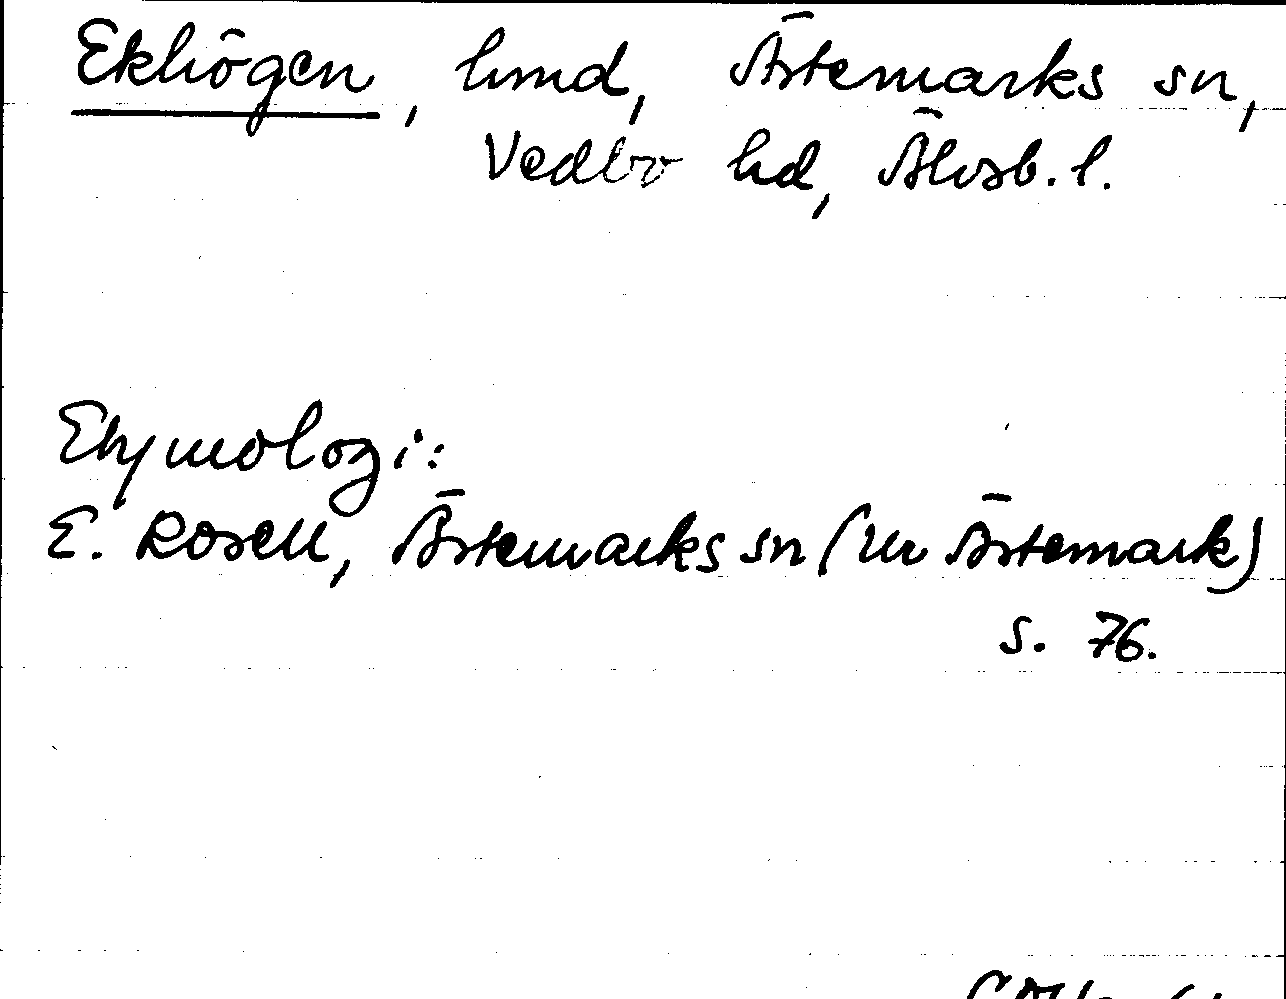 Ekhögen, lund, Ärtemarks sn,
Vedbo hd, Älvsb. l.
Etymologi:
E. Rosell, Ärtemarks sn (ur Ärtemark)
s. 76.